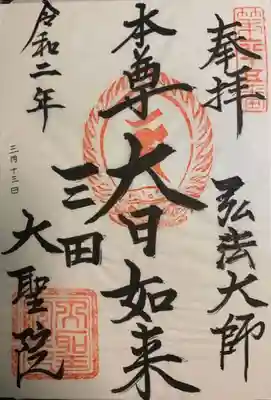 奉拝
弘法大師
本尊
大日如来
三田
大聖院
令和二年
三月十三日